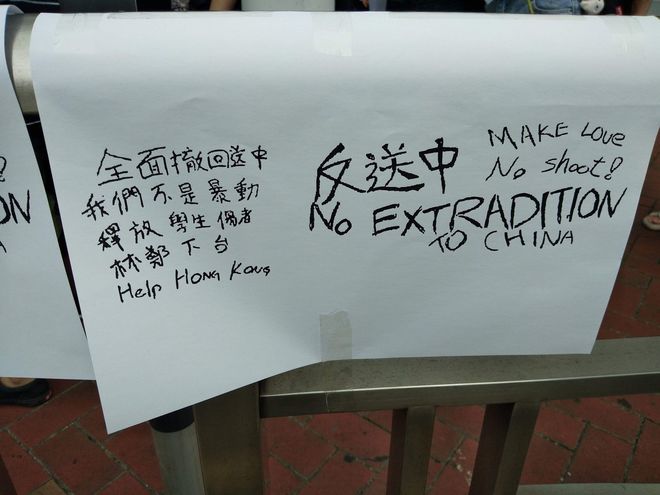 全面撤回送中
我們不是暴動
釋放學生傷者
林鄭下台
Help Hong Kong
反送中
No EXTRADITION
TO CHINA
MAKE Love
No shoot!
?
ON
NA